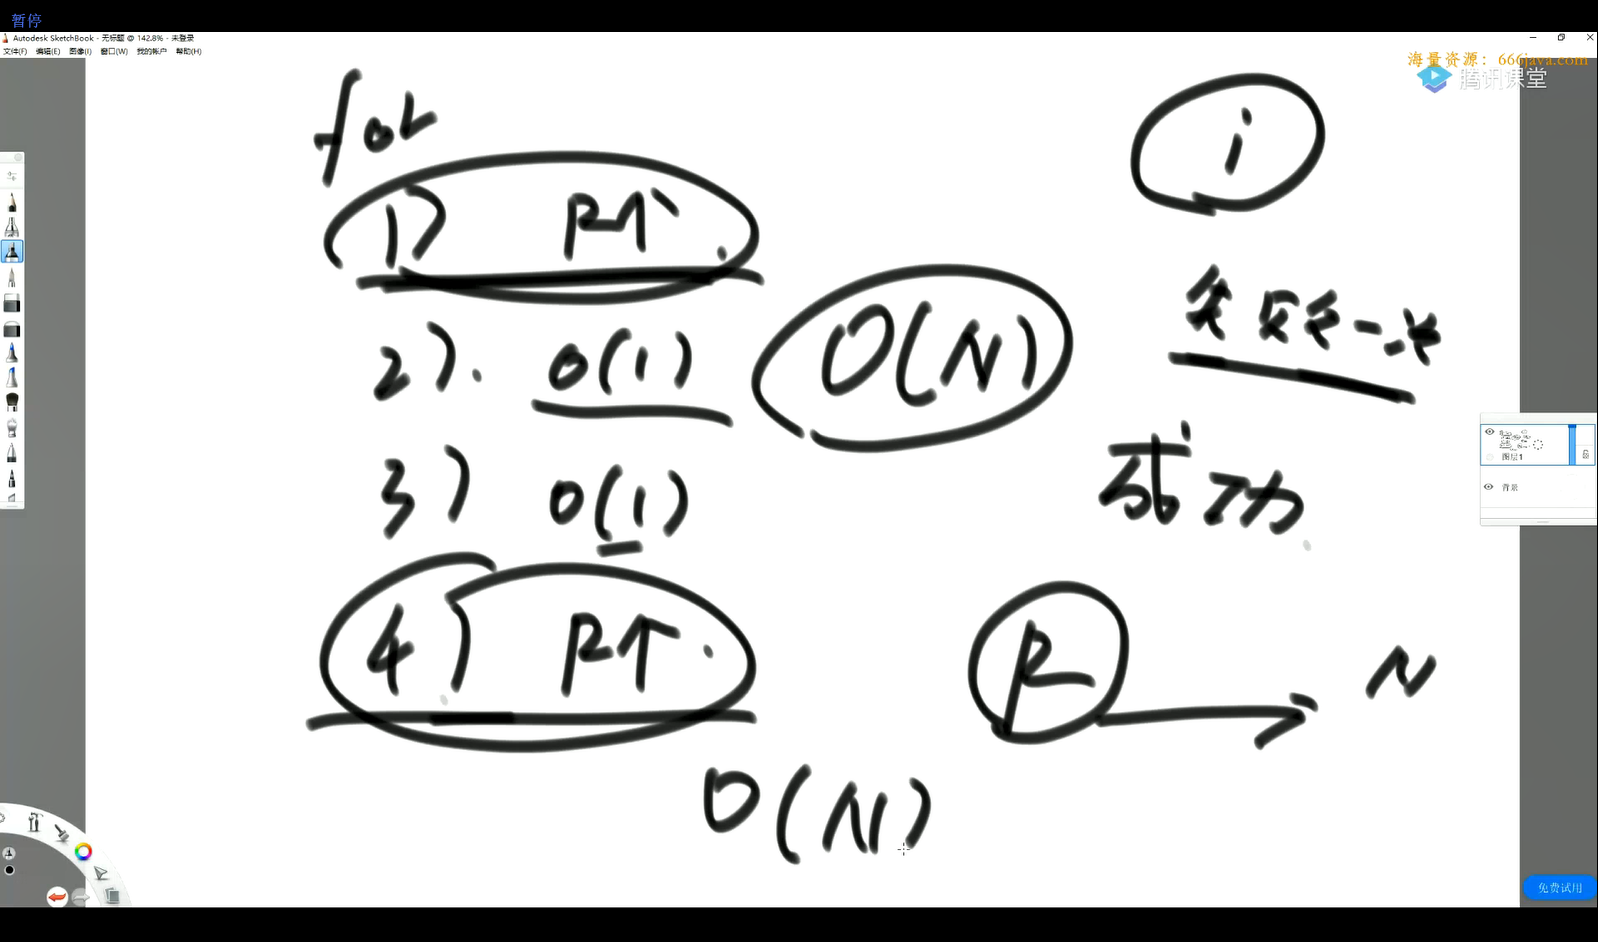 暂停
Autodesk SketchBook - 无标题 @ 142.8% - 未登录
文件(F) 编辑(E) 图像(I) 窗口(W) 我的帐户 帮助(H)
海量资源：666java.com
腾讯课堂
for
i
1) R个.
2). O(1)
O(N)
失败一次
3) O(1)
成功
4) R个.
R → N
O(N)
图层1
背景
免费试用